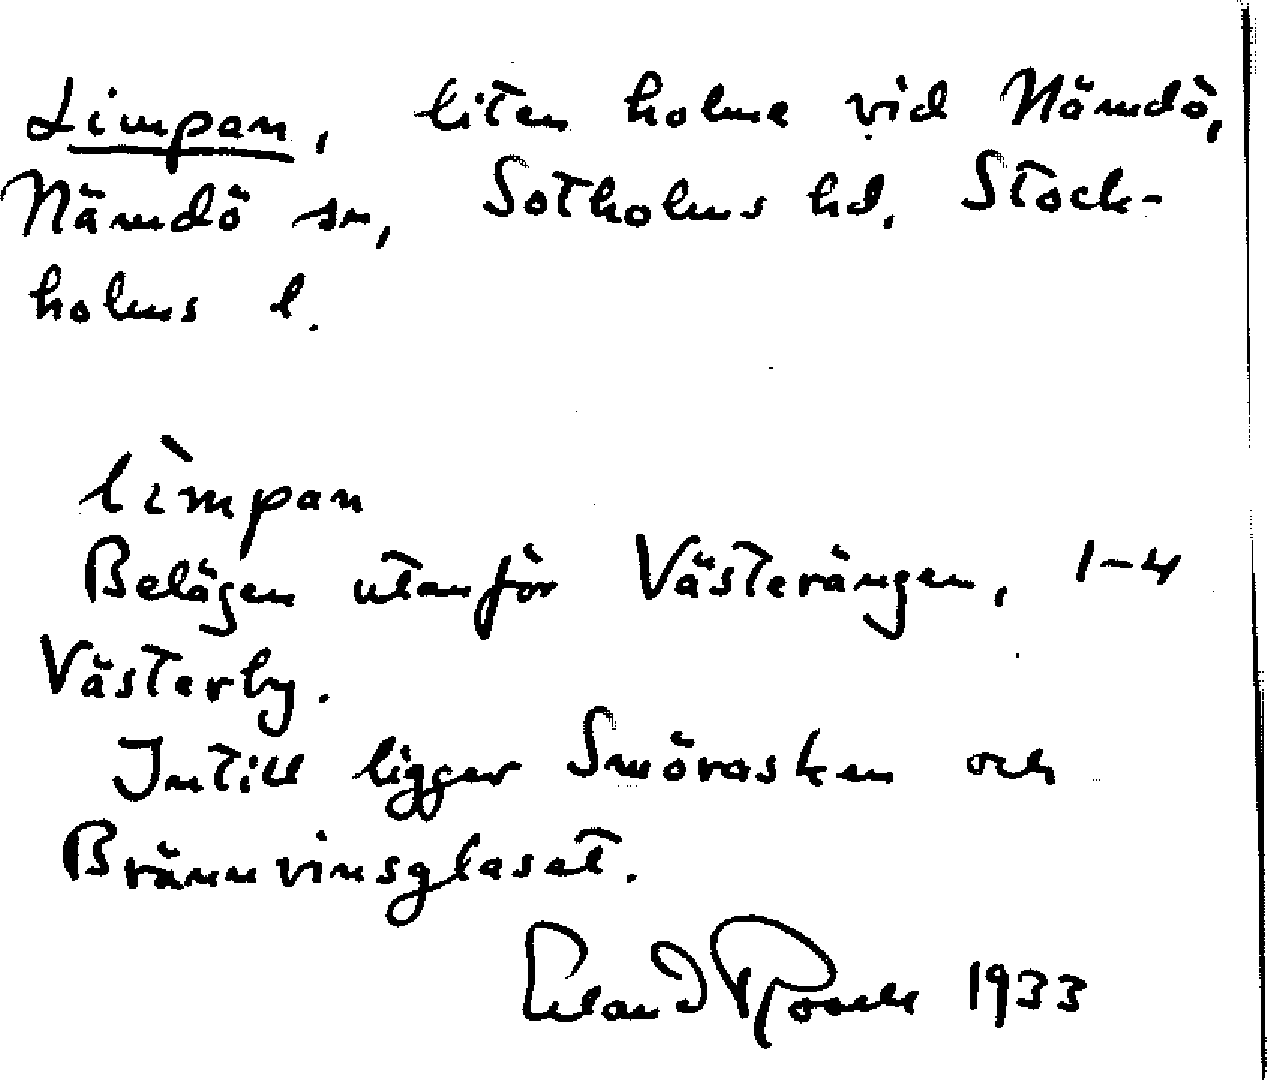 Limpan, liten holme vid Nämdö,
Nämdö sn, Sotholms hd. Stock-
holms l.
lìmpan
Belägen utanför Västerängen, 1-4
Västerby.
Intill ligger Smörasken och
Brännvinsglaset.
Erland Rosell 1933